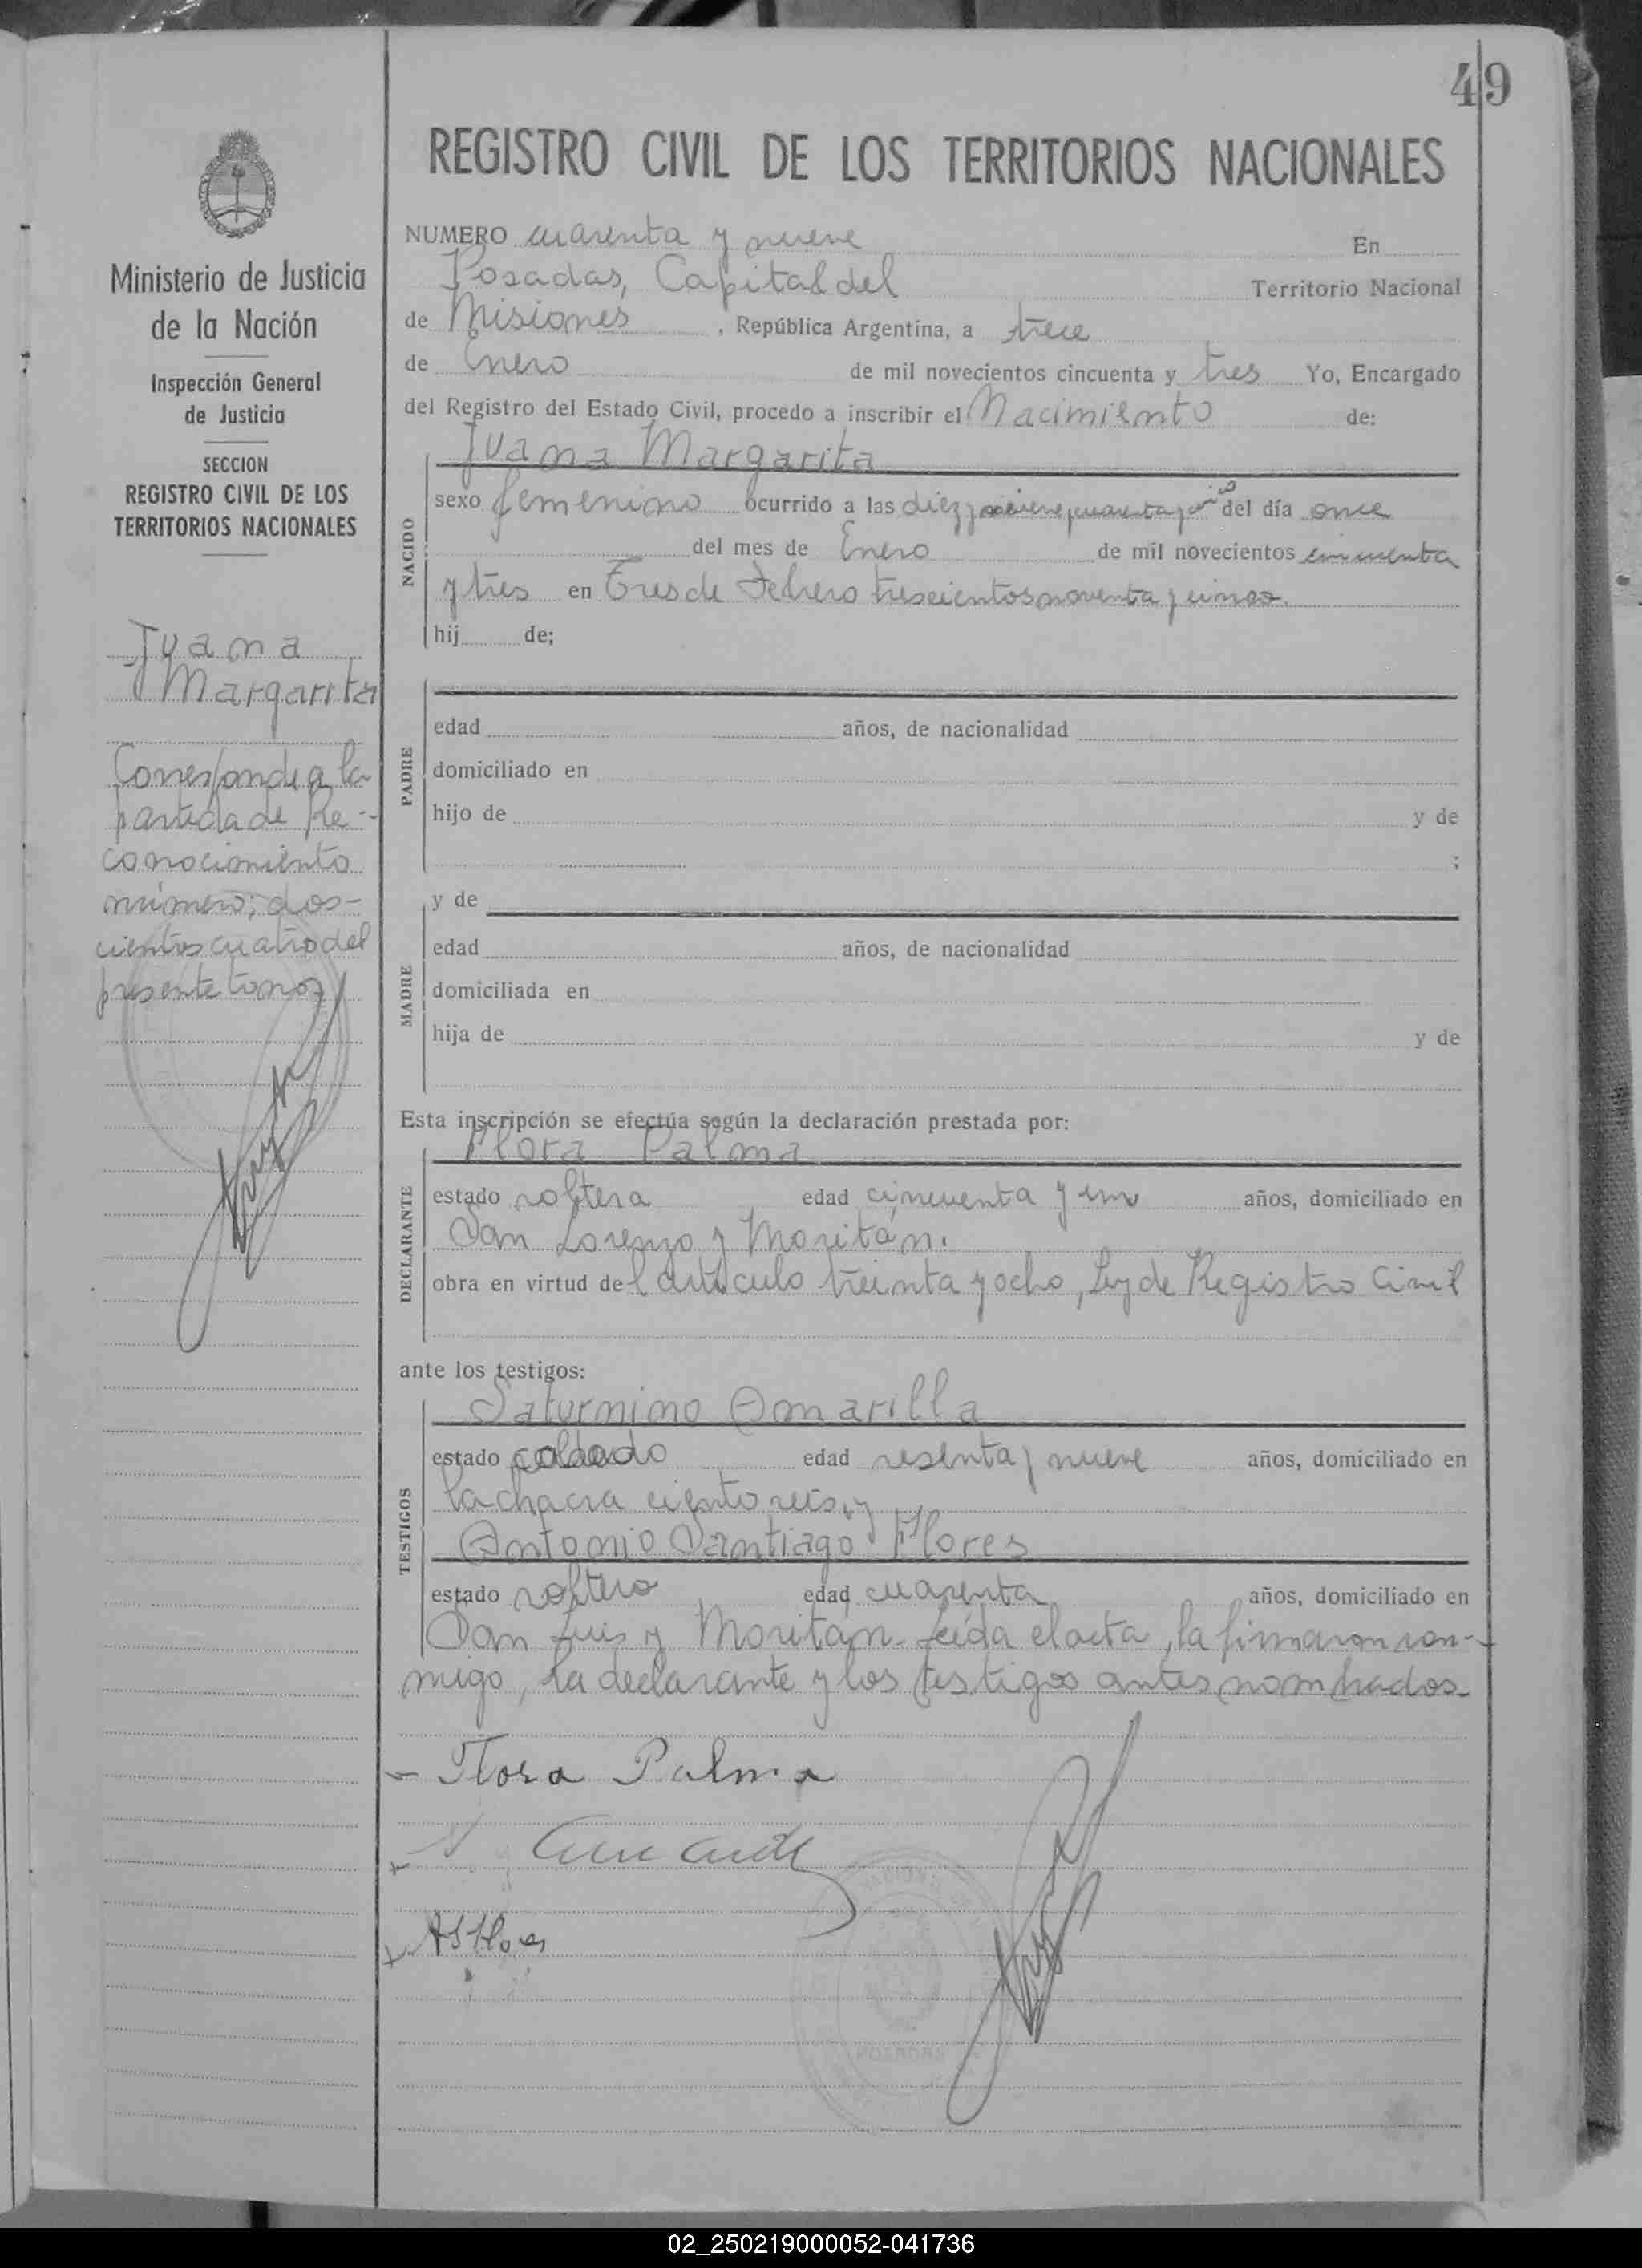 49
REGISTRO CIVIL DE LOS TERRITORIOS NACIONALES
Ministerio de Justicia
de la Nación
Inspección General
de Justicia
SECCION
REGISTRO CIVIL DE LOS
TERRITORIOS NACIONALES
Juana
Margarita
Corresponde a la
partida de Re-
conocimiento
número; dos-
cientos cuatro del
presente tomo
NUMERO cuarenta y nueve En
Posadas, Capital del Territorio Nacional
de Misiones, República Argentina, a trece
de Enero de mil novecientos cincuenta y tres Yo, Encargado
del Registro del Estado Civil, procedo a inscribir el Nacimiento de:
Juana Margarita
NACIDO
sexo femenino ocurrido a las diez y nueve, cuarenta y del día once
del mes de Enero de mil novecientos cincuenta
y tres en Tres de Febrero trescientos noventa y cinco.
hij de;
PADRE
edad años, de nacionalidad
domiciliado en
hijo de y de
;
MADRE
y de
edad años, de nacionalidad
domiciliada en
hija de y de
Esta inscripción se efectúa según la declaración prestada por:
Flora Palma
DECLARANTE
estado soltera edad cincuenta y un años, domiciliado en
San Lorenzo y Moritán.
obra en virtud del artículo treinta y ocho, Ley de Registro Civil
ante los testigos:
Saturnino Amarilla
TESTIGOS
estado casado edad sesenta y nueve años, domiciliado en
la chacra ciento seis, y
Antonio Santiago Flores
estado soltero edad cuarenta años, domiciliado en
San Luis y Moritán. Leída el acta, la firmaron con-
migo, la declarante y los testigos antes nombrados.
Flora Palma
ASFlores
POSADAS
02_250219000052-041736